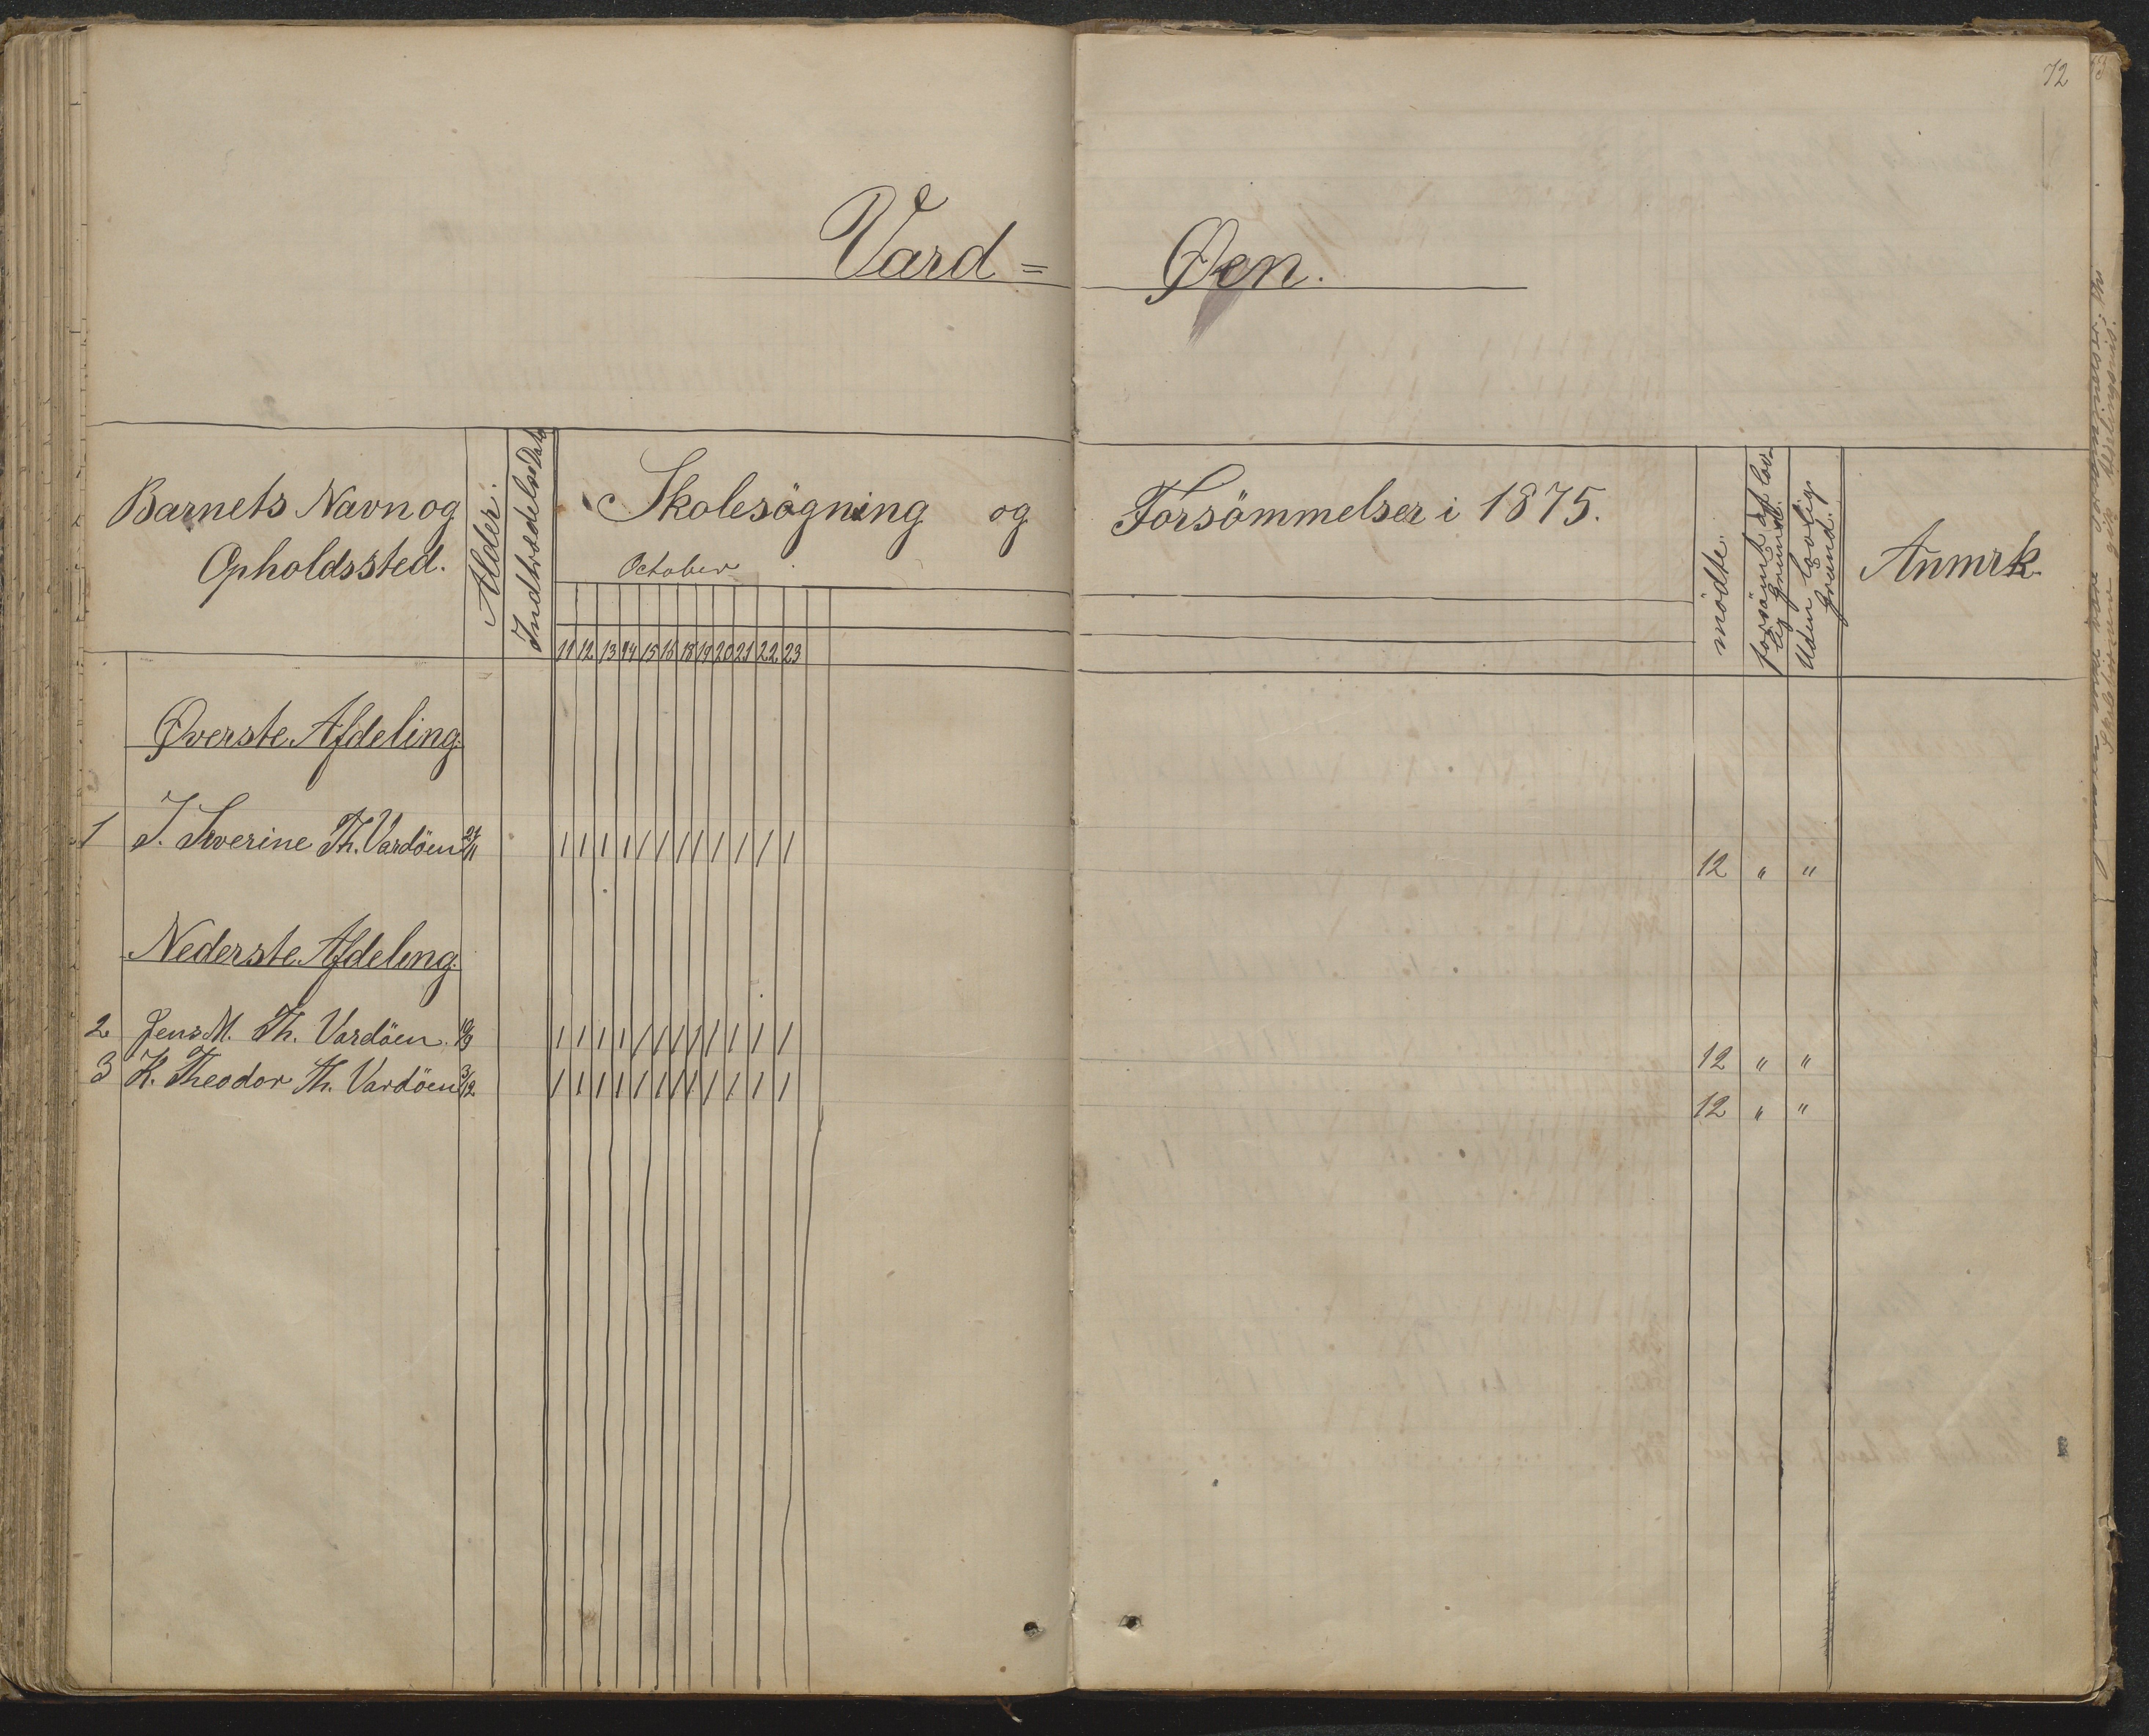 72
Vard= Øen.
Barnets Navn og Opholdssted.
Alder.
Indtrædelses Dato
Skolesögning og Forsömmelser i 1875.
October
mödte.
forsömt af lov-
lig Grund.
Uden lovlig
Grund.
Anmrk.
11 12 13 14 15 16 18 19 20 21 22 23
Øverste Afdeling.
1 J. Severine Th. Vardöen / / / / / / / / / / / / 12 " "
Nederste Afdeling.
2 Jens M. Th. Vardöen. / / / / / / / / / / / / 12 " "
3 K. Theodor Th. Vardöen 3/12 / / / / / / / / / / / / 12 " "